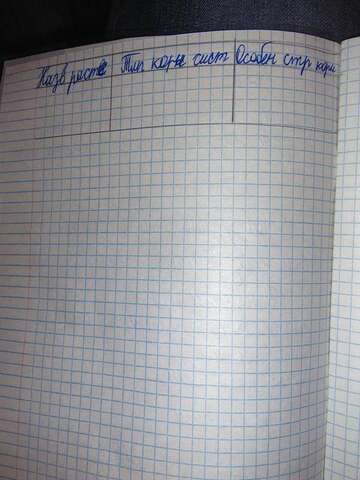 Назв расте Тип корне сист Особен стр корн